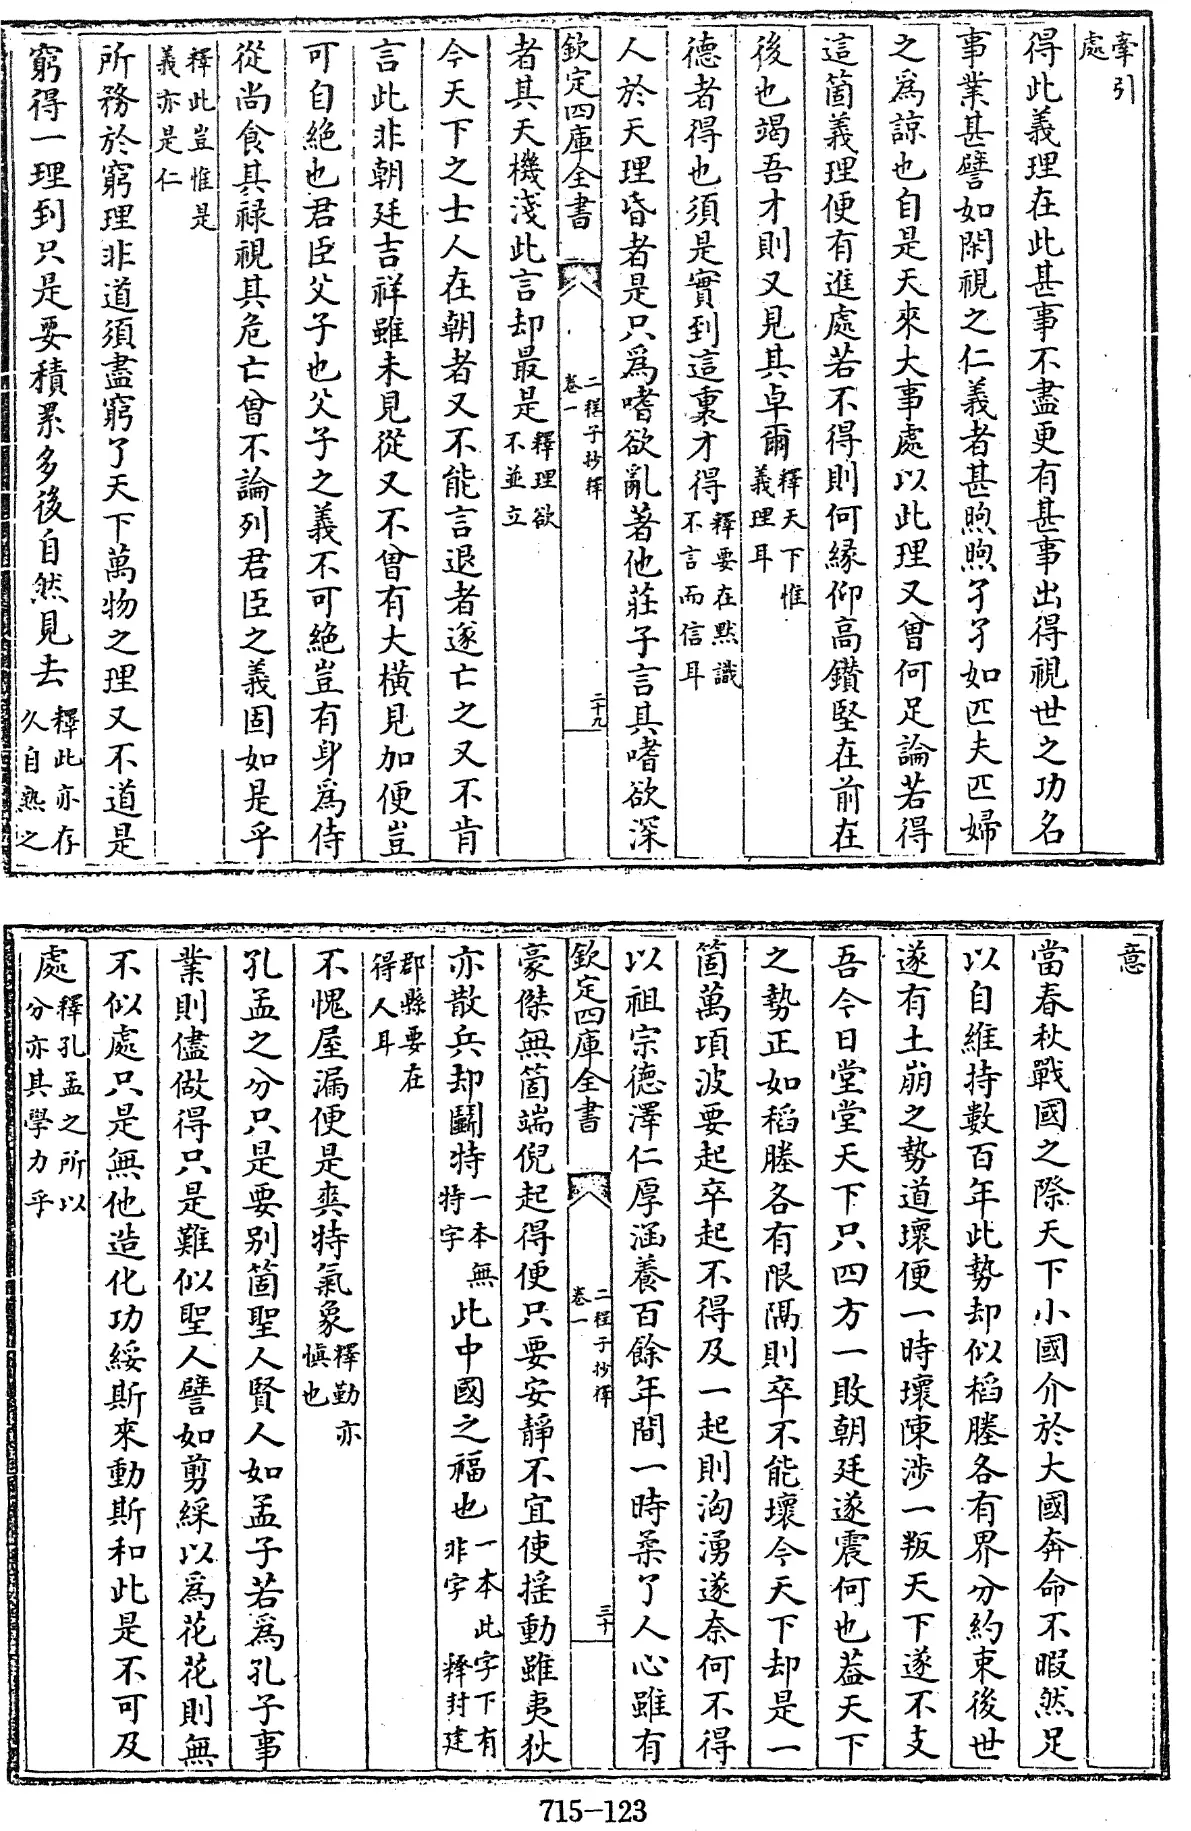 牽引處
得此義理在此甚事不盡更有甚事出得視世之功名
事業甚譬如閑視之仁義者甚煦煦孑孑如匹夫匹婦
之爲諒也自是天來大事處以此理又曾何足論若得
這箇義理便有進處若不得則何緣仰高鑽堅在前在
後也竭吾才則又見其卓爾釋天下惟義理耳
德者得也須是實到這裏才得釋要在黙識不言而信耳
人於天理昏者是只爲嗜欲亂著他莊子言其嗜欲深
欽定四庫全書 二程子抄釋 卷一 二十九
者其天機淺此言却最是釋理欲不並立
今天下之士人在朝者又不能言退者遂亡之又不肯
言此非朝廷吉祥雖未見從又不曾有大橫見加便豈
可自絶也君臣父子也父子之義不可絶豈有身爲侍
從尚食其祿視其危亡曾不論列君臣之義固如是乎
釋此豈惟是義亦是仁
所務於窮理非道須盡窮了天下萬物之理又不道是
窮得一理到只是要積累多後自然見去釋此亦存久自熟之
意
當春秋戰國之際天下小國介於大國奔命不暇然足
以自維持數百年此勢却似稻塍各有界分約束後世
遂有土崩之勢道壞便一時壞陳涉一叛天下遂不支
吾今日堂堂天下只四方一敗朝廷遂震何也葢天下
之勢正如稻塍各有限隔則卒不能壞今天下却是一
箇萬項波要起卒起不得及一起則洶湧遂奈何不得
以祖宗德澤仁厚涵養百餘年間一時柔了人心雖有
欽定四庫全書 二程子抄釋 卷一 三十
豪傑無箇端倪起得便只要安靜不宜使搖動雖夷狄
亦散兵却鬭特一本無特字此中國之福也一本此字下有非字 釋封建
郡縣要在得人耳
不愧屋漏便是爽特氣象釋勤亦愼也
孔孟之分只是要別箇聖人賢人如孟子若爲孔子事
業則儘做得只是難似聖人譬如剪綵以爲花花則無
不似處只是無他造化功綏斯來動斯和此是不可及
處釋孔孟之所以分亦其學力乎
715-123